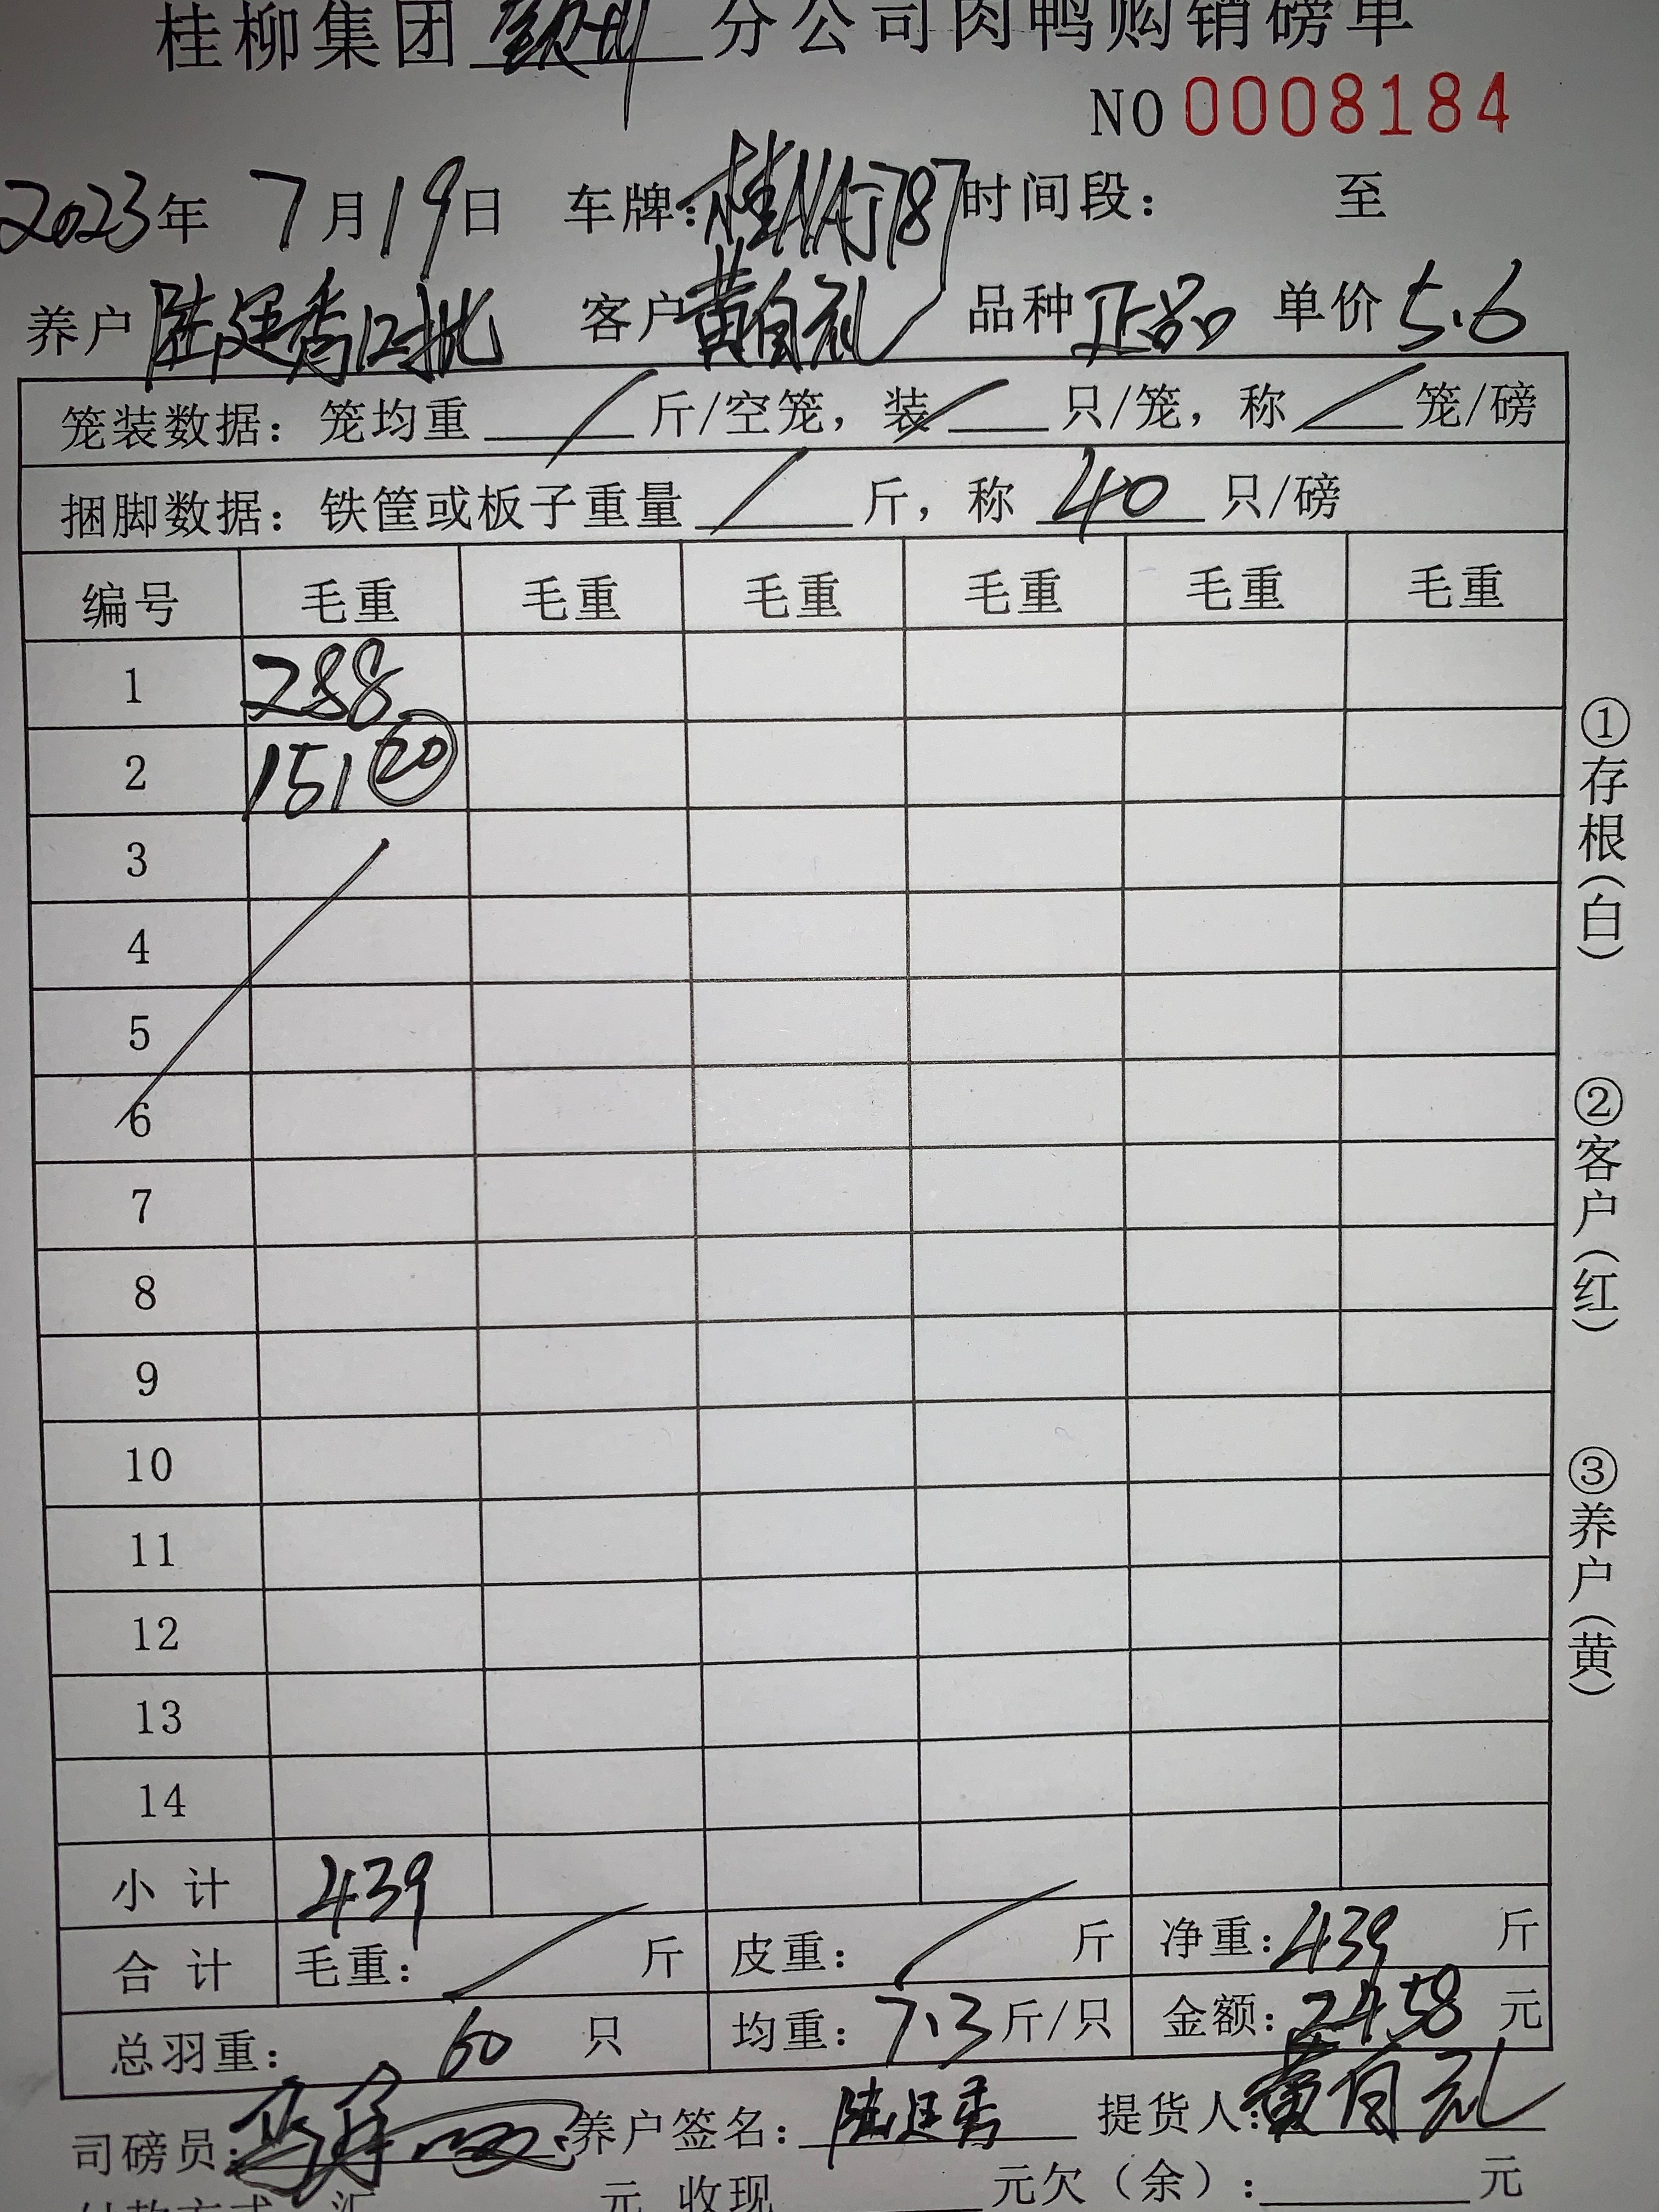 桂柳集团钦州分公司肉鸭购销磅单
NO 0008184
2023年 7月19日 车牌:桂NAJ787 时间段: 至
养户 陆廷香12批 客户 黄自礼 品种 正品 单价 5.6
笼装数据: 笼均重 / 斤/空笼, 装 / 只/笼, 称 / 笼/磅
捆脚数据: 铁筐或板子重量 / 斤, 称 40 只/磅
编号 毛重 毛重 毛重 毛重 毛重 毛重
1 288
2 151 ⑳
3
4
5
6
7
8
9
10
11
12
13
14
小计 439
合计 毛重: / 斤 皮重: / 斤 净重: 439 斤
总羽重: 60 只 均重: 7.3 斤/只 金额: 2458 元
司磅员: 养户签名: 陆廷香 提货人: 黄自礼
付款方式 汇 元 收现 元欠(余): 元
①存根(白)
②客户(红)
③养户(黄)